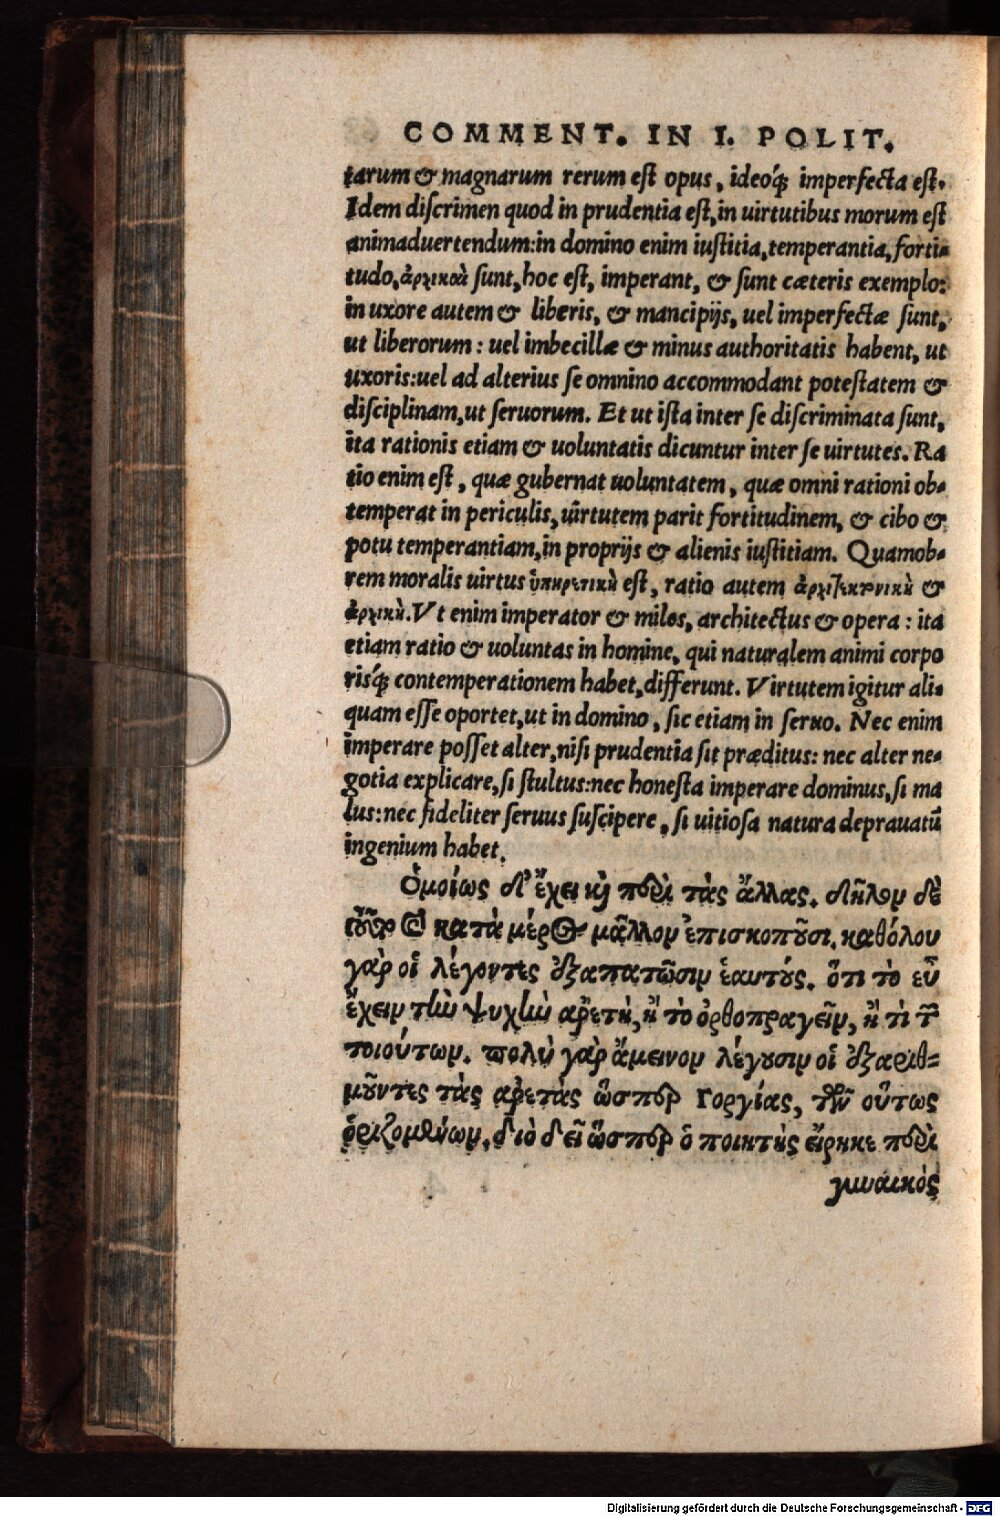 COMMENT. IN I. POLIT.
tarum & magnarum rerum est opus, ideoq́; imperfecta est.
Idem discrimen quod in prudentia est, in uirtutibus morum est
animaduertendum: in domino enim iustitia, temperantia, forti-
tudo, ἀρχικαὶ sunt, hoc est, imperant, & sunt cæteris exemplo:
in uxore autem & liberis, & mancipijs, uel imperfectæ sunt,
ut liberorum: uel imbecillæ & minus authoritatis habent, ut
uxoris: uel ad alterius se omnino accommodant potestatem &
disciplinam, ut seruorum. Et ut ista inter se discriminata sunt,
ita rationis etiam & uoluntatis dicuntur inter se uirtutes. Ra
tio enim est, quæ gubernat uoluntatem, quæ omni rationi ob-
temperat in periculis, uirtutem parit fortitudinem, & cibo &
potu temperantiam, in proprijs & alienis iustitiam. Quamob-
rem moralis uirtus ὑπηρετικὴ est, ratio autem ἀρχιτεκτονικὴ &
ἀρχικὴ. Vt enim imperator & miles, architectus & opera: ita
etiam ratio & uoluntas in homine, qui naturalem animi corpo
risq́; contemperationem habet, differunt. Virtutem igitur ali-
quam esse oportet, ut in domino, sic etiam in seruo. Nec enim
imperare posset alter, nisi prudentia sit præditus: nec alter ne-
gotia explicare, si stultus: nec honesta imperare dominus, si ma
lus: nec fideliter seruus suscipere, si uitiosa natura deprauatū
ingenium habet.
Ὁμοίως δ' ἔχει καὶ περὶ τὰς ἄλλας. δῆλον δὲ
τοῦτο καὶ κατὰ μέρος μᾶλλον ἐπισκοποῦσι. καθόλου
γὰρ οἱ λέγοντες ἐξαπατῶσιν ἑαυτούς. ὅτι τὸ εὖ
ἔχειν τὴν ψυχὴν ἀρετὴ, ἢ τὸ ὀρθοπραγεῖν, ἢ τὶ τῶν
τοιούτων. πολὺ γὰρ ἄμεινον λέγουσιν οἱ ἐξαριθ-
μοῦντες τὰς ἀρετὰς ὥσπερ Γοργίας, τῶν οὕτως
ὁριζομένων. διὸ δεῖ ὥσπερ ὁ ποιητὴς εἴρηκε περὶ
γυναικὸς
Digitalisierung gefördert durch die Deutsche Forschungsgemeinschaft - DFG